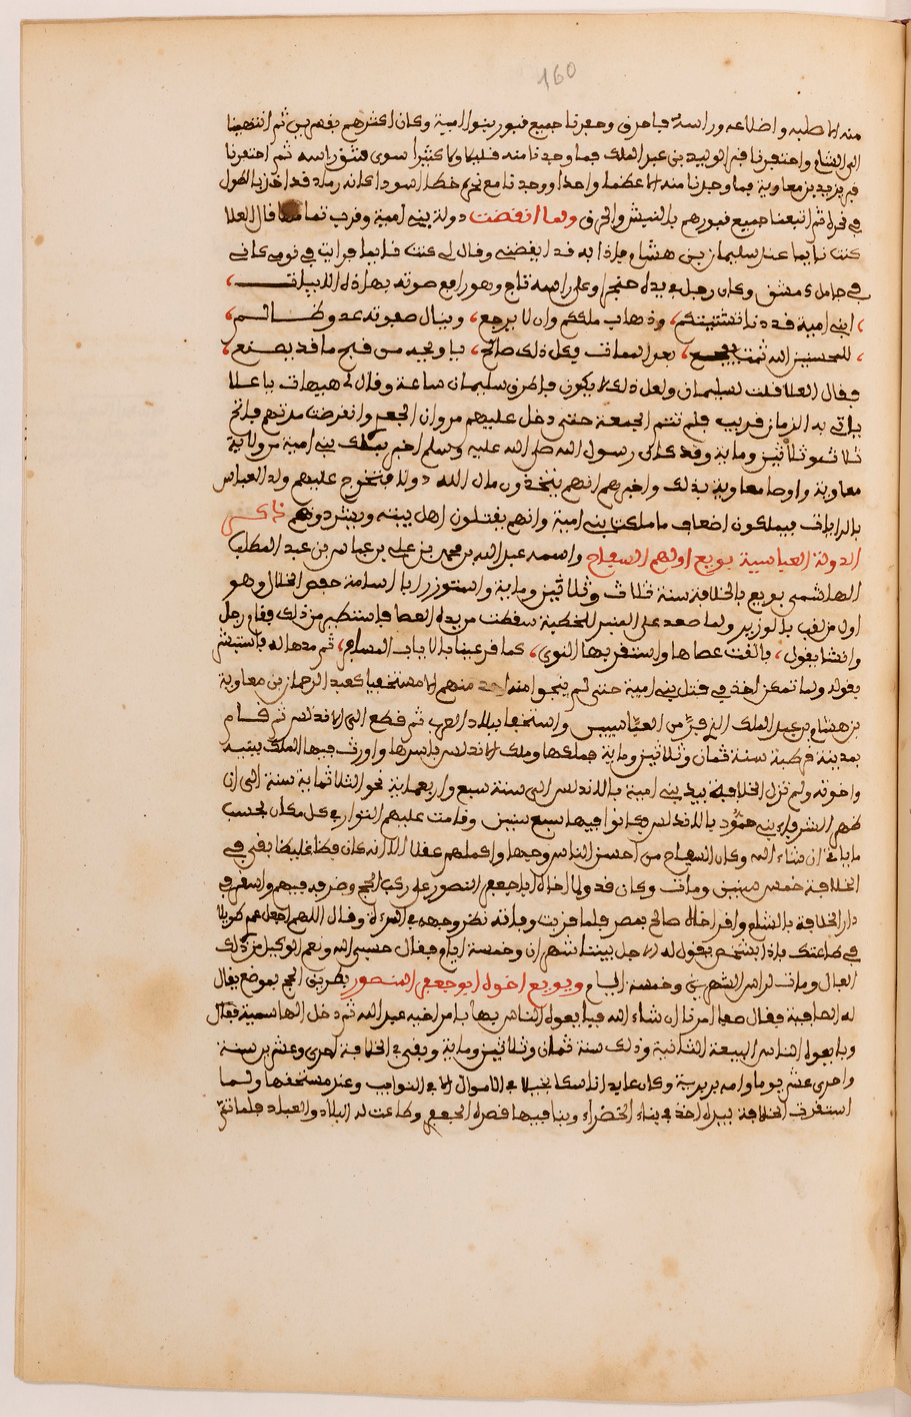 160
منه الا صلبه واضلاعه وراسه فاحرق وحفرنا جميع قبور بنوا امية وكان اكثرهم بقنسرين ثم انتهينا
الى الشام واحتفرنا قبر الوليد بن عبد الملك فما وجدنا منه قليلا ولا كثيرا سوى شق راسه ثم احتفرنا
قبر يزيد بن معاوية فما وجدنا منه الا عظما واحدا ووجدنا مع نحره خطا اسودا كانه رماد قد اخذ بالطول
في نحره ثم اتبعنا جميع قبورهم بالنبش والحرق ولما انقضت دولة بني امية وقرب تمامها قال العلا
كنت نايما عند سليمان بن هشام فاذا به قد ايقضني وقال لي كنت نايما فرايت في نومي كاني
في جامع دمشق وكان رجل بيده خنجر وعلى راسه تاج وهو رافع صوته بهاذه الابيات
ابني امية قد دنا تشتيتكم، وذهاب ملككم وان لا يرجع، وينال صفوته عدو ظالم،
للمحسنين اليه ثمت يفجع، بعد الممات فكل ذلك صالح، يا ويحه من قبح ما قد يصنع،
فقال العلا فقلت لسليمان ولعل ذلك لا يكون فاطرق سليمان ساعة وقال لي هيهات يا علا
ياتي به الزمان قريب فلم تتم الجمعة حتى دخل عليهم مروان الجعدي وانقرضت مدتهم في تاريخ
ثلاثة وثلاثين وماية وقد كان رسول الله صلى الله عليه وسلم اخبر بملك بني امية من ولاية
معاوية واوصا معاوية بذلك واخبرهم انهم يتخذون مال الله دولا فتخرج عليهم ولد العباس
بالرايات فيملكون اضعاف ما ملكت بني امية وانهم يقتلون اهل بيته ويشردونهم ذكر
الدولة العباسية بويع اولهم السفاح واسمه عبد الله بن محمد بن علي بن عباس بن عبد المطلب
الهاشمي بويع بالخلافة سنة ثلاث وثلاثين وماية واستوزر ابا سلمة حفص الخلال وهو
اول من لقب بالوزير ولما صعد على المنبر للخطبة سقطت من يده العصا فاستطير من ذلك فقام رجل
وانشا يقول، فالقت عصاها واستقر بها النوى، كما قر عينا بالاياب المسافر، ثم مدها له فاستبشر
بقوله ولما تمكن اخذ في قتل بني امية حتى لم ينجوا منه احد منهم الا مستخفيا كعبد الرحمان بن معاوية
بن هشام بن عبد الملك الذي فر من العباسيين واستخفا ببلاد المغرب ثم قطع الى الاندلس ثم قام
بمدينة قرطبة سنة ثمان وثلاثين وماية فملكها وملك الاندلس باسرها واورث فيها الملك بنيه
واخوته ولم تزل الخلافة بيد بني امية بالاندلس الى سنة سبع واربعماية نحو الثلاثماية سنة الى ان
ظهر الشرفاء بني حمود بالاندلس فكانوا فيها سبع سنين وقامت عليهم الثوار في كل مكان لحسب
ما ياتي ان شاء الله وكان السفاح من احسن الناس وجها واكملهم عقلا الا انه كان فظا غليظا بقي في
الخلافة خمس سنين ومات وكان قد ولا اخاه ابا جعفر المنصور على ركب الحج وضرغد فيهم والسفر في
دار الخلافة بالشام واقر اخاه صالح بمصر فلما قربت وفاته نظر وجهه في المرءاة وقال اللهم اجعل عمري طويلا
في طاعتك فاذا بشخص يقول له الاجل بيننا شهران وخمسة ايام فقال حسبي الله ونعم الوكيل من ذلك
الفال ومات لراس الشهرين وخمسة ايام وبويع اخوه ابو جعفر المنصور بطريق الحج بموضع يقال
له الصافية فقال صفا امرنا ان شاء الله فبايعوه الناس بها بامر اخيه عبد الله ثم دخل الهاشمية فقال
وبايعوه الناس البيعة الثانية وذلك سنة ثمان وثلاثين وماية وبقي في الخلافة احدى وعشرين سنة
واحدى عشر يوما وامه بربرية وكان عابدا ناسكا بخيلا في الاموال الا في النوايب وعند مستحقها ولما
استقرت الخلافة بيده اخذ في بناء الخضراء وبنا فيها قصره الجعفري وطاعت له البلاد والعباد فلما تم